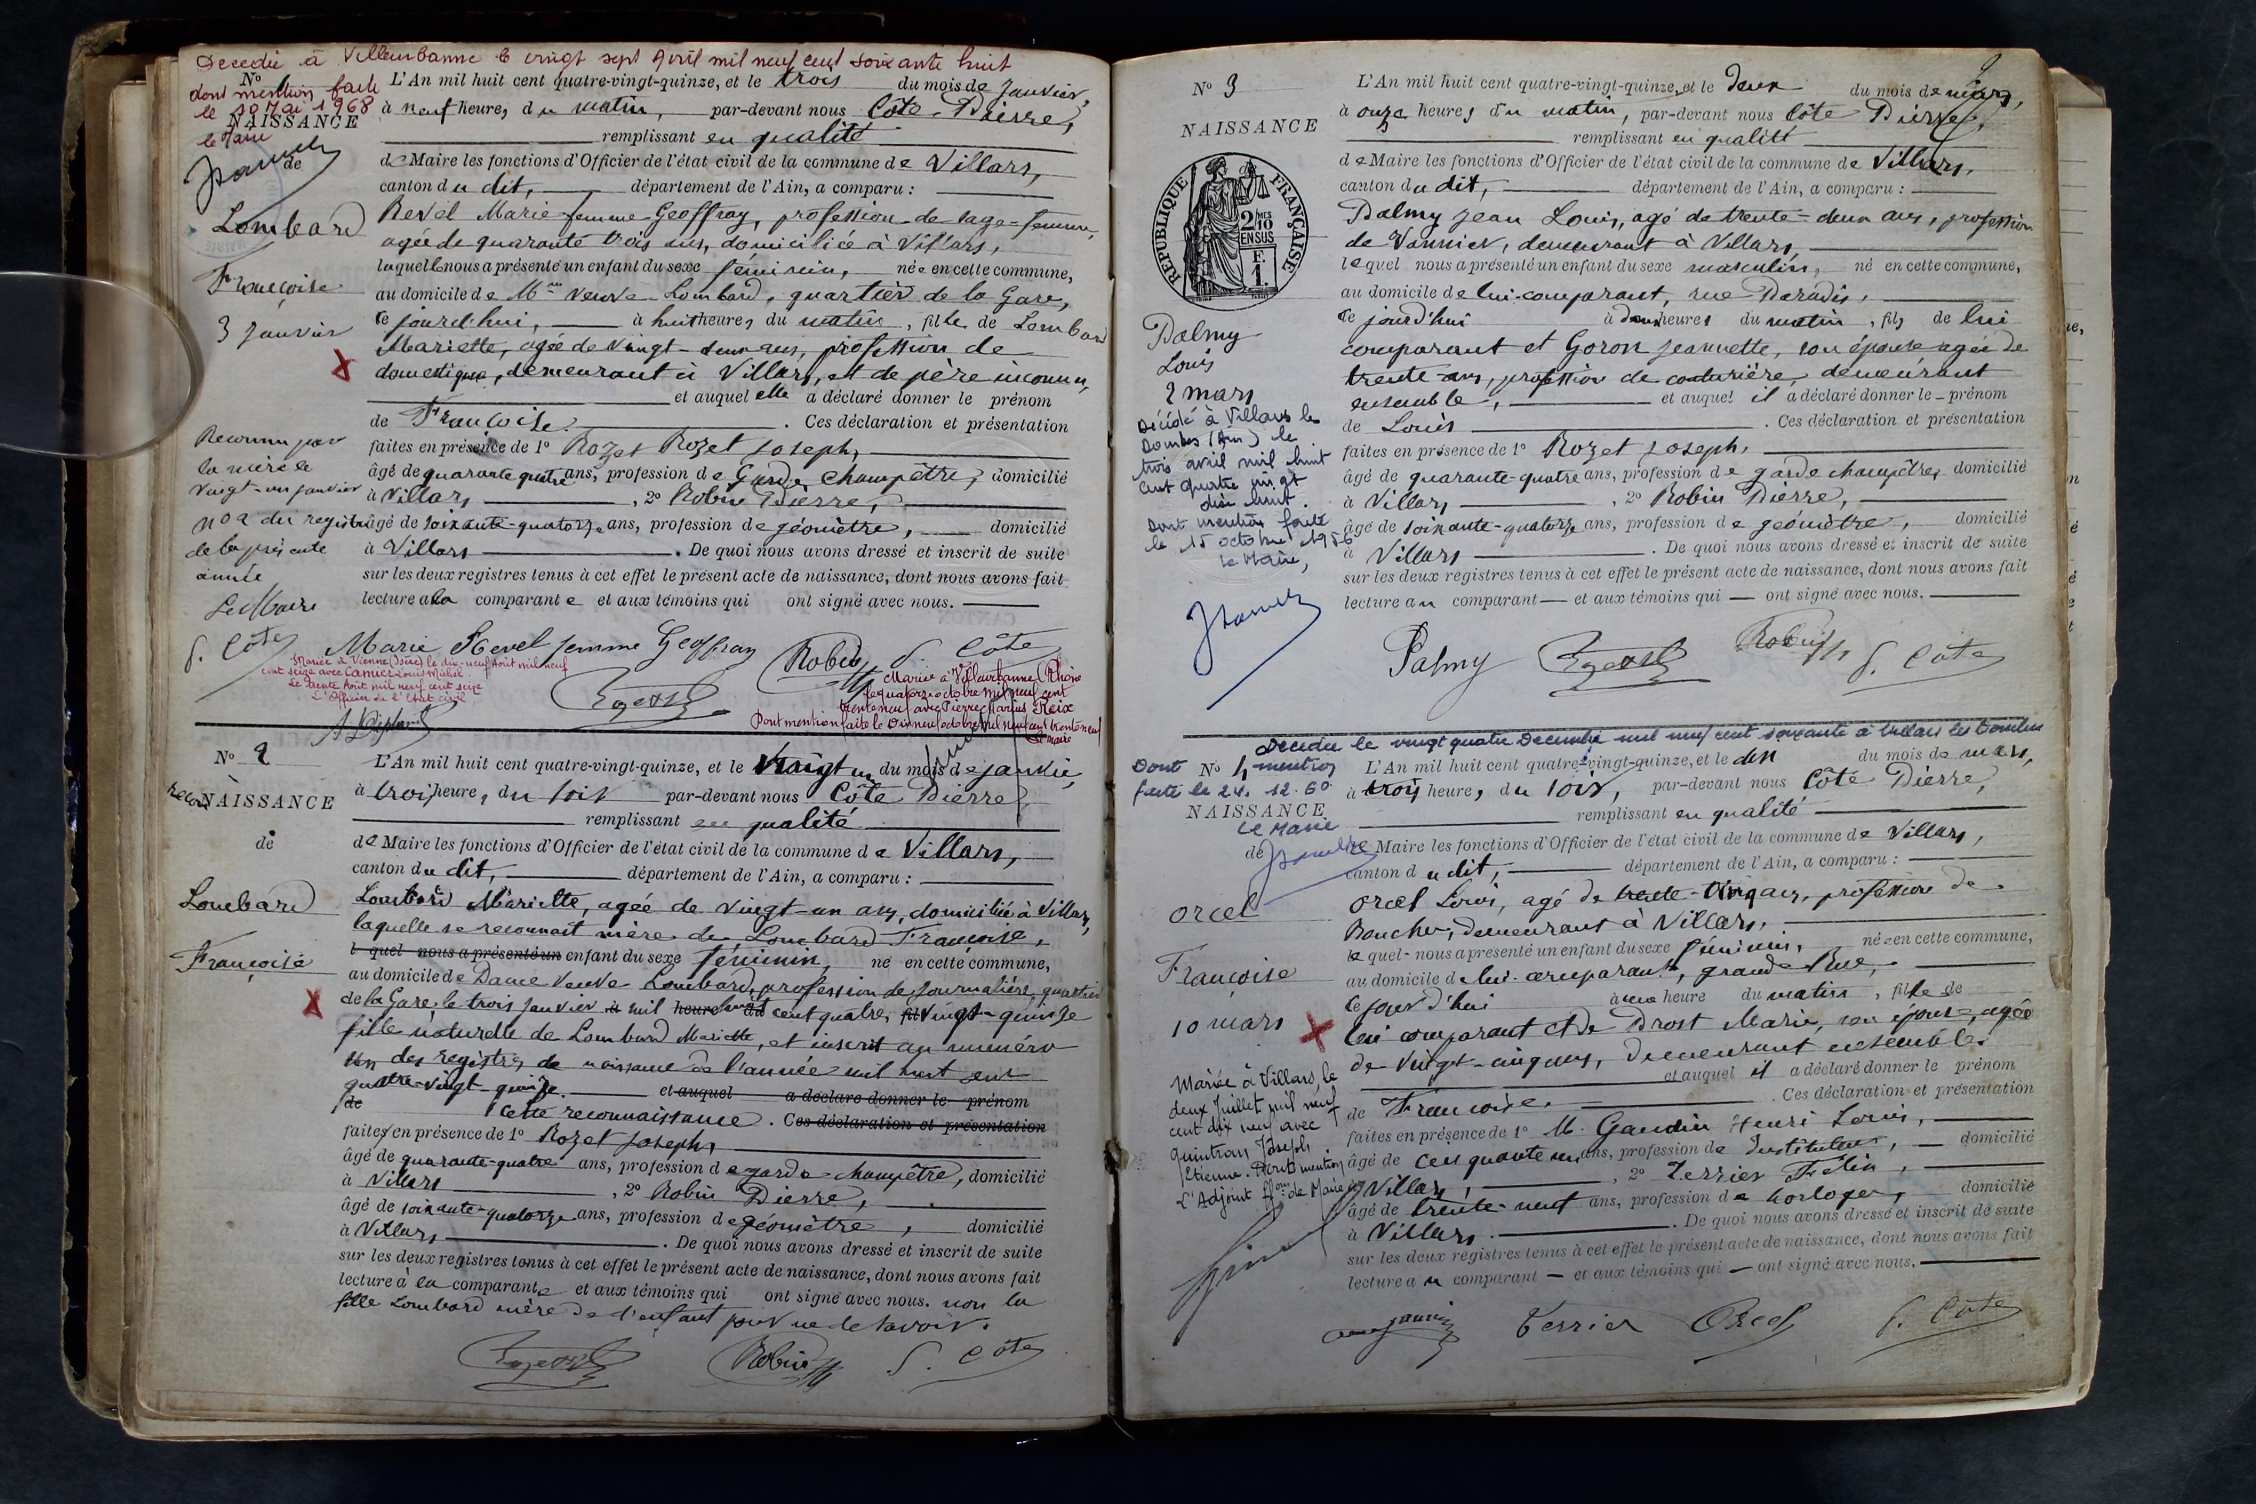 Decedée à Villeurbanne le vingt sept Avril mil neuf cent soixante huit
No 1
dont mention faite
le 10 Mai 1968
le Maire
NAISSANCE
de
Lombard
Françoise
3 Janvier
L'An mil huit cent quatre-vingt-quinze, et le trois du mois de Janvier,
à neuf heures du matin, par-devant nous Côte Pierre,
remplissant en qualité
de Maire les fonctions d'Officier de l'état civil de la commune de Villars,
canton du dit, département de l'Ain, a comparu :
Revel Marie femme Geoffray, profession de sage-femme,
agée de quarante trois ans, domiciliée à Villars,
laquelle nous a présenté un enfant du sexe féminin, née en cette commune,
au domicile de Mme veuve Lombard, quartier de la Gare,
ce jourd'hui, à huit heures du matin, fille de Lombard
Mariette, agée de vingt-deux ans, profession de
domestique, demeurant à Villars, et de père inconnu,
et auquel elle a déclaré donner le prénom
de Françoise. Ces déclaration et présentation
faites en présence de 1° Rozet Rozet Joseph,
âgé de quarante quatre ans, profession de Garde champêtre, domicilié
à Villars, 2° Robin Pierre,
âgé de soixante-quatorze ans, profession de géomètre, domicilié
à Villars. De quoi nous avons dressé et inscrit de suite
sur les deux registres tenus à cet effet le présent acte de naissance, dont nous avons fait
lecture à la comparante et aux témoins qui ont signé avec nous.
Reconnu par
la mère le
vingt-un janvier
no 2 du registre
de la présente
année
Le Maire
P. Côte
Marie Revel femme Geoffray Robin P. Côte
Mariée à Vienne (Isère) le dix-neuf Août mil neuf
cent seize avec Camier Louis Michel
Le trente Août mil neuf cent seize
L'Officier de l'Etat civil
Mariée à Villeurbanne (Rhône)
le quatorze octobre mil neuf cent
trente neuf avec Pierre Marius Reix
Dont mention faite le dix neuf octobre mil neuf cent trente neuf
Le maire
No 2
NAISSANCE
de
Lombard
Françoise
L'An mil huit cent quatre-vingt-quinze, et le vingt un du mois de janvier,
à trois heures du soir par-devant nous Côte Pierre,
remplissant en qualité
de Maire les fonctions d'Officier de l'état civil de la commune de Villars,
canton du dit, département de l'Ain, a comparu :
Lombard Mariette, agée de vingt-un ans, domiciliée à Villars,
laquelle se reconnait mère de Lombard Françoise,
l quel nous a présenté un enfant du sexe féminin, né en cette commune,
au domicile de Dame veuve Lombard, profession de journalière, quartier
de la Gare, le trois janvier à mil heure huit du cent quatre, fil vingt-quinze
fille naturelle de Lombard Mariette, et inscrit au numéro
un des registres de naissance de l'année mil huit cent
quatre-vingt-quinze. et auquel a déclaré donner le prénom
de cette reconnaissance. Ces déclaration et présentation
faites en présence de 1° Rozet Joseph,
âgé de quarante-quatre ans, profession de garde-champêtre, domicilié
à Villars, 2° Robin Pierre,
âgé de soixante-quatorze ans, profession de géomètre, domicilié
à Villars. De quoi nous avons dressé et inscrit de suite
sur les deux registres tenus à cet effet le présent acte de naissance, dont nous avons fait
lecture à la comparante et aux témoins qui ont signé avec nous. non la
fille Lombard mère de l'enfant pour ne le savoir.
Robin P. Côte
2
No 3
NAISSANCE
RÉPUBLIQUE FRANÇAISE
2/10 MES
EN SUS
F.
1.
Palmy
Louis
2 mars
L'An mil huit cent quatre-vingt-quinze, et le deux du mois de mars,
à onze heures du matin, par-devant nous Côte Pierre,
remplissant en qualité
de Maire les fonctions d'Officier de l'état civil de la commune de Villars,
canton du dit, département de l'Ain, a comparu :
Palmy Jean Louis, agé de trente-deux ans, profession
de Vannier, demeurant à Villars,
lequel nous a présenté un enfant du sexe masculin, né en cette commune,
au domicile de lui-comparant, rue Paradis,
ce jourd'hui à deux heures du matin, fils de lui
comparant et Goron Jeannette, son épouse agée de
trente ans, profession de couturière, demeurant
ensemble, et auquel il a déclaré donner le prénom
de Louis. Ces déclaration et présentation
faites en présence de 1° Rozet Joseph,
âgé de quarante-quatre ans, profession de garde champêtre, domicilié
à Villars, 2° Robin Pierre,
âgé de soixante-quatorze ans, profession de géomètre, domicilié
à Villars. De quoi nous avons dressé et inscrit de suite
sur les deux registres tenus à cet effet le présent acte de naissance, dont nous avons fait
lecture au comparant et aux témoins qui ont signé avec nous.
Décédé à Villars les
Dombes (Ain) le
trois avril mil huit
cent quatre vingt
dix huit.
Dont mention faite
le 15 octobre 1956
Le Maire,
Palmy Robin P. Côte
Decedée le vingt quatre Decembre mil neuf cent soixante à Villars les Dombes
Dont mention
faite le 24.12.60
Le Maire
No 4
NAISSANCE
de
Orcel
Françoise
10 mars
L'An mil huit cent quatre-vingt-quinze, et le dix du mois de mars,
à trois heures du soir, par-devant nous Côte Pierre,
remplissant en qualité
de Maire les fonctions d'Officier de l'état civil de la commune de Villars,
canton du dit, département de l'Ain, a comparu :
Orcel Louis, agé de trente-cinq ans, profession de
Boucher, demeurant à Villars,
lequel nous a présenté un enfant du sexe féminin, née en cette commune,
au domicile de lui-comparant, grande Rue,
ce jour d'hui à une heure du matin, fille de
lui comparant et de Drost Marie, son épouse, agée
de vingt-cinq ans, demeurant ensemble.
et auquel il a déclaré donner le prénom
de Françoise. Ces déclaration et présentation
faites en présence de 1° M. Gaudin Henri Louis,
âgé de cinquante un ans, profession de Instituteur, domicilié
à Villars, 2° Terrier Félix,
âgé de trente-neuf ans, profession de horloger, domicilié
à Villars. De quoi nous avons dressé et inscrit de suite
sur les deux registres tenus à cet effet le présent acte de naissance, dont nous avons fait
lecture au comparant et aux témoins qui ont signé avec nous.
Mariée à Villars, le
deux Juillet mil neuf
cent dix neuf avec
Quintran Joseph
Etienne. Dont mention
L'Adjoint ffons de Maire
Terrier Orcel P. Côte